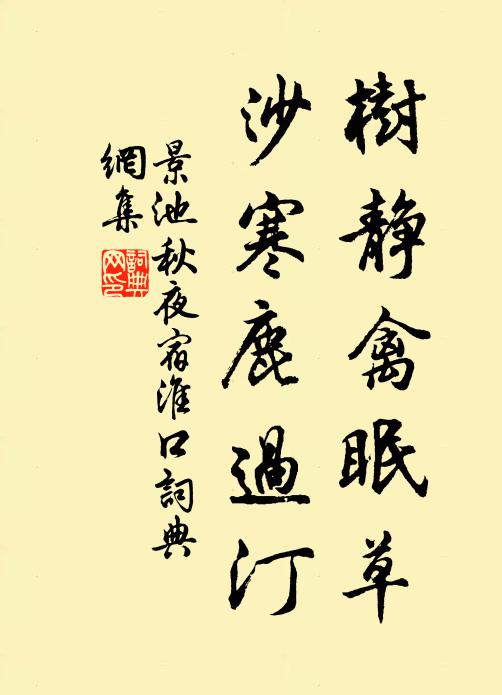 樹静禽眠草
沙寒鹿過汀
景池秋夜宿淮口詞典
網集
詞典
网印